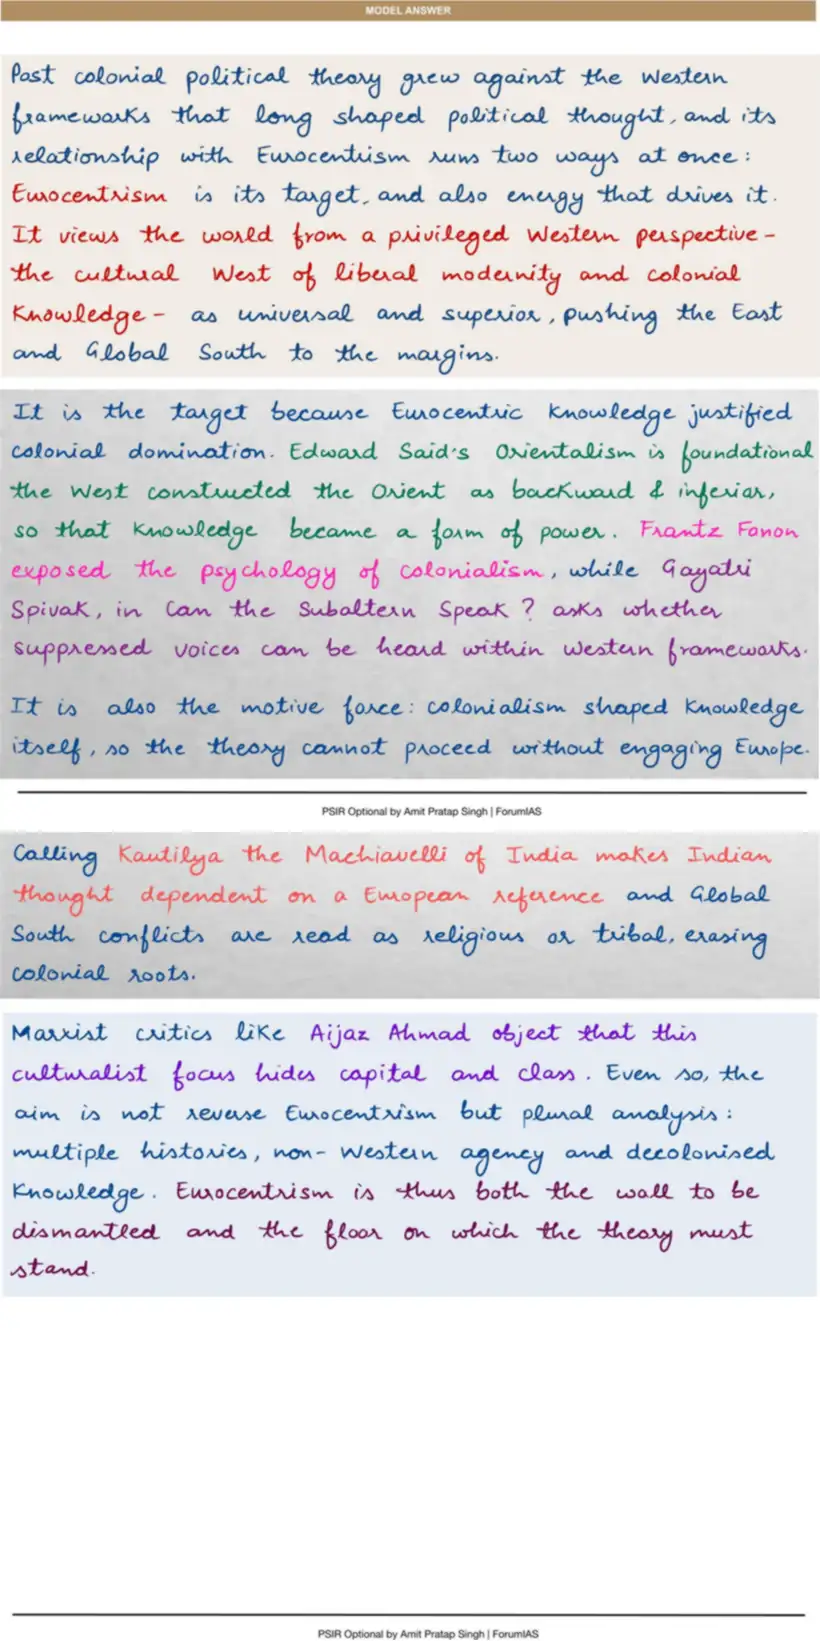 MODEL ANSWER
Post colonial political theory grew against the Western
frameworks that long shaped political thought, and its
relationship with Eurocentrism runs two ways at once:
Eurocentrism is its target, and also energy that drives it.
It views the world from a privileged Western perspective -
the cultural West of liberal modernity and colonial
Knowledge - as universal and superior, pushing the East
and Global South to the margins.
It is the target because Eurocentric Knowledge justified
colonial domination. Edward Said's Orientalism is foundational
the West constructed the Orient as backward & inferior,
so that Knowledge became a form of power. Frantz Fanon
exposed the psychology of colonialism, while Gayatri
Spivak, in Can the Subaltern Speak? asks whether
suppressed voices can be heard within Western frameworks.
It is also the motive force: colonialism shaped Knowledge
itself, so the theory cannot proceed without engaging Europe.
PSIR Optional by Amit Pratap Singh | ForumIAS
Calling Kautilya the Machiavelli of India makes Indian
thought dependent on a European reference and Global
South conflicts are read as religious or tribal, erasing
colonial roots.
Marxist critics like Aijaz Ahmad object that this
culturalist focus hides capital and class. Even so, the
aim is not reverse Eurocentrism but plural analysis:
multiple histories, non-Western agency and decolonised
Knowledge. Eurocentrism is thus both the wall to be
dismantled and the floor on which the theory must
stand.
PSIR Optional by Amit Pratap Singh | ForumIAS